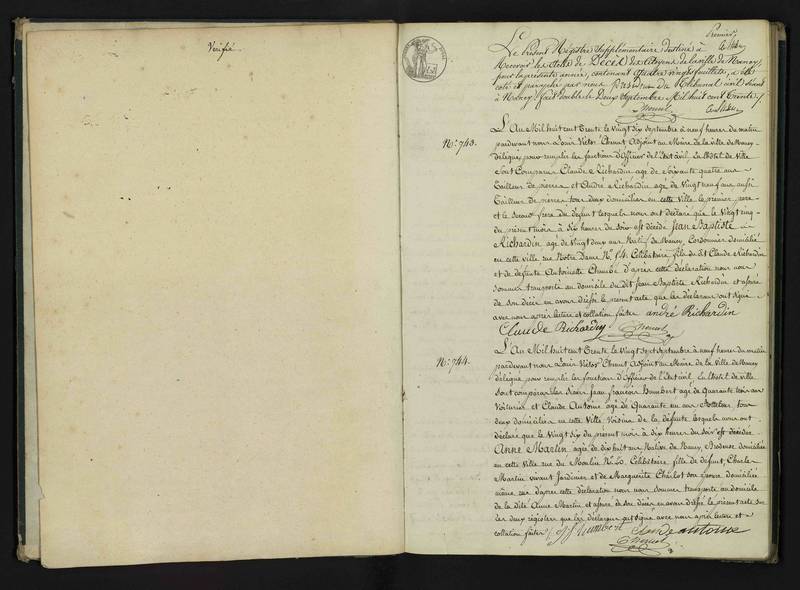 Vérifié
Premier
Le Présent Registre Supplémentaire destiné à
Recevoir les Actes de Décès des Citoyens de la ville de Nancy,
pour la présente année, contenant quatre vingt feuillets, a été
coté et paraphé par nous Président du Tribunal civil séant
à Nancy, fait double le Deux Septembre Mil huit cent Trente
N.o 743.
L'An Mil huit cent Trente le vingt six Septembre à neuf heures du matin
pardevant nous Louis Victor Adjoint au Maire de la ville de Nancy
délégué pour remplir les fonctions d'officier de l'état civil, En l'hôtel de Ville
Sont Comparus Claude Richardin agé de Soixante quatre ans
Tailleur de pierres et André Richardin agé de Vingt neuf ans aussi
Tailleur de pierres, tous deux domiciliés en cette Ville le premier père
et le Second frère du défunt lesquels nous ont déclaré que le Vingt cinq
du présent mois à Six heures du soir est décédé Jean Baptiste
Richardin agé de Vingt deux ans Natif de Nancy, Cordonnier domicilié
en cette ville rue Notre Dame N.o 14. Célibataire, fils du dit Claude Richardin
et de défunte Antoinette d'après cette déclaration nous nous
sommes transporté au domicile du dit Jean Baptiste Richardin et assuré
de son décès en avons dressé le présent acte que les déclarans ont signé
avec nous après lecture et collation faites andré Richardin
Claude Richardin
N.o 744.
L'An Mil huit cent Trente le Vingt Sept Septembre à neuf heures du matin
pardevant nous Louis Victor Adjoint au Maire de la Ville de Nancy
délégué pour remplir les fonctions d'officier de l'état civil, En l'hôtel de Ville
Sont comparus les Sieurs Jean françois Humbert agé de Quarante trois ans
Voiturier et Claude Antoine agé de Quarante un ans tous
deux domiciliés en cette Ville, Voisins de la défunte lesquels nous ont
déclaré que le Vingt Six du présent mois à dix heures du soir est décédée
Anne Martin agée de dix huit ans Native de Nancy, Brodeuse domiciliée
en cette ville rue du Moulin N.o 20. Célibataire fille de défunt Charles
Martin vivant Jardinier et de Marguerite Charlot son épouse domiciliée
même rue d'après cette déclaration nous nous sommes transporté au domicile
de la dite Anne Martin et assuré de son décès en avons dressé le présent acte sur
les deux registres que les déclarans ont signé avec nous après lecture et
collation faites Humbert Claude antoine